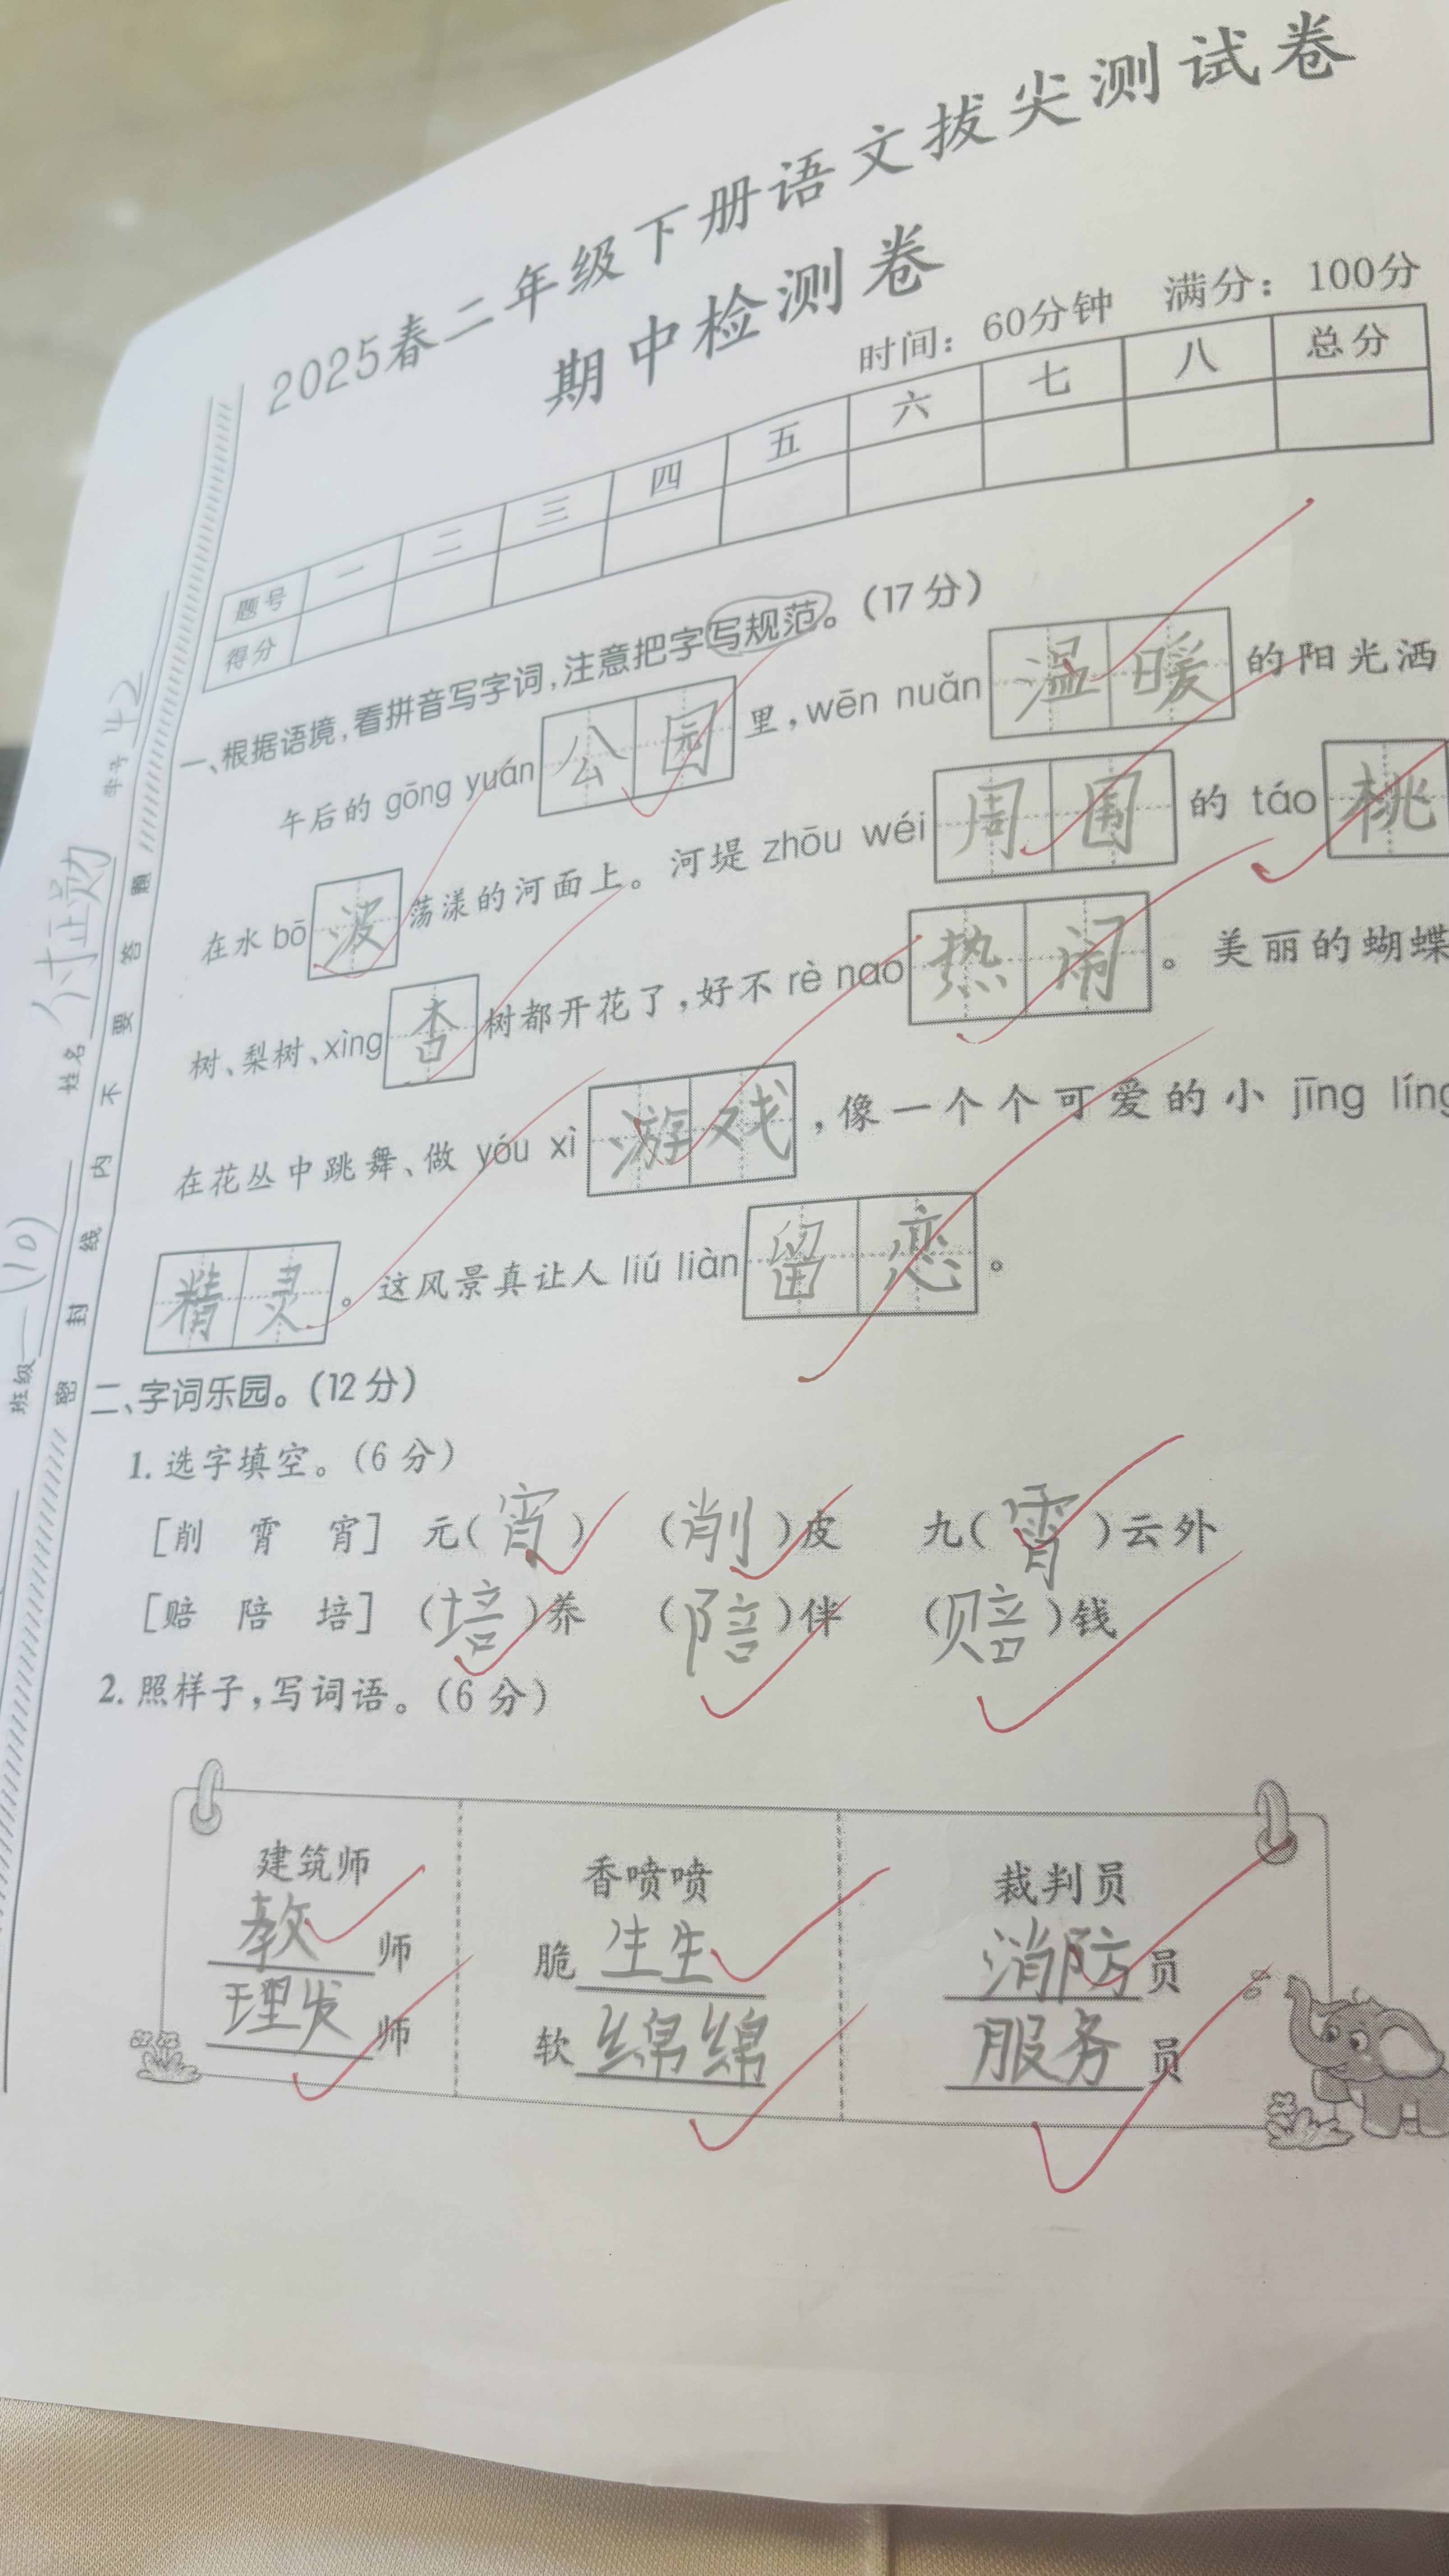 2025春二年级下册语文拔尖测试卷
期中检测卷
时间：60分钟 满分：100分
题号 一 二 三 四 五 六 七 八 总分
得分
一、根据语境，看拼音写字词，注意把字写规范。（17分）
午后的 gōng yuán 公园 里，wēn nuǎn 温暖 的阳光洒
在水 bō 波 荡漾的河面上。河堤 zhōu wéi 周围 的 táo 桃
树、梨树、xìng 杏 树都开花了，好不 rè nao 热闹。美丽的蝴蝶
在花丛中跳舞、做 yóu xì 游戏，像一个个可爱的小 jīng líng
精灵。这风景真让人 liú liàn 留恋。
二、字词乐园。（12分）
1. 选字填空。（6分）
［削 霄 宵］ 元（宵） （削）皮 九（霄）云外
［赔 陪 培］ （培）养 （陪）伴 （赔）钱
2. 照样子，写词语。（6分）
建筑师 香喷喷 裁判员
教师 脆生生 消防员
理发师 软绵绵 服务员
班级 一（10） 姓名 学号 42
密 封 线 内 不 要 答 题